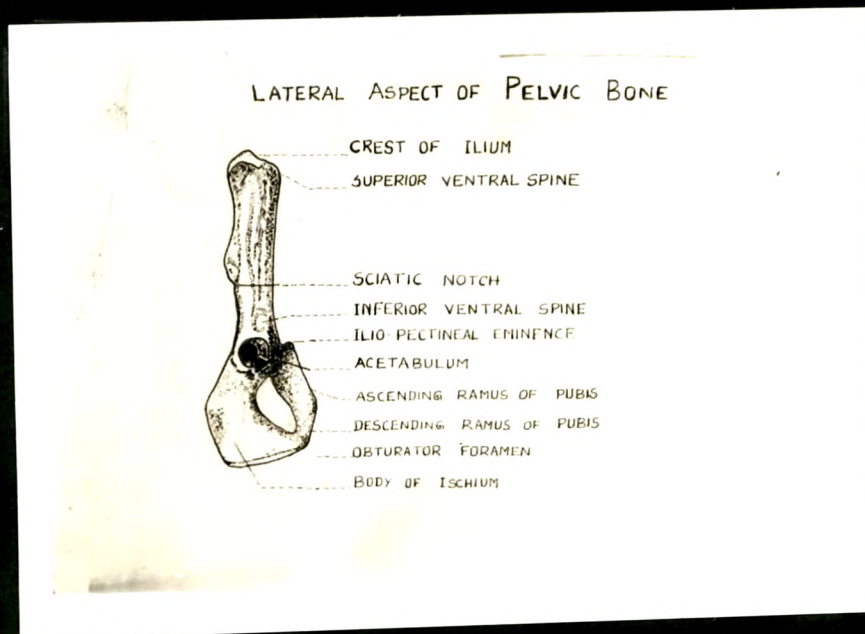 LATERAL ASPECT OF PELVIC BONE
CREST OF ILIUM
SUPERIOR VENTRAL SPINE
SCIATIC NOTCH
INFERIOR VENTRAL SPINE
ILIO-PECTINEAL EMINENCE
ACETABULUM
ASCENDING RAMUS OF PUBIS
DESCENDING RAMUS OF PUBIS
OBTURATOR FORAMEN
BODY OF ISCHIUM